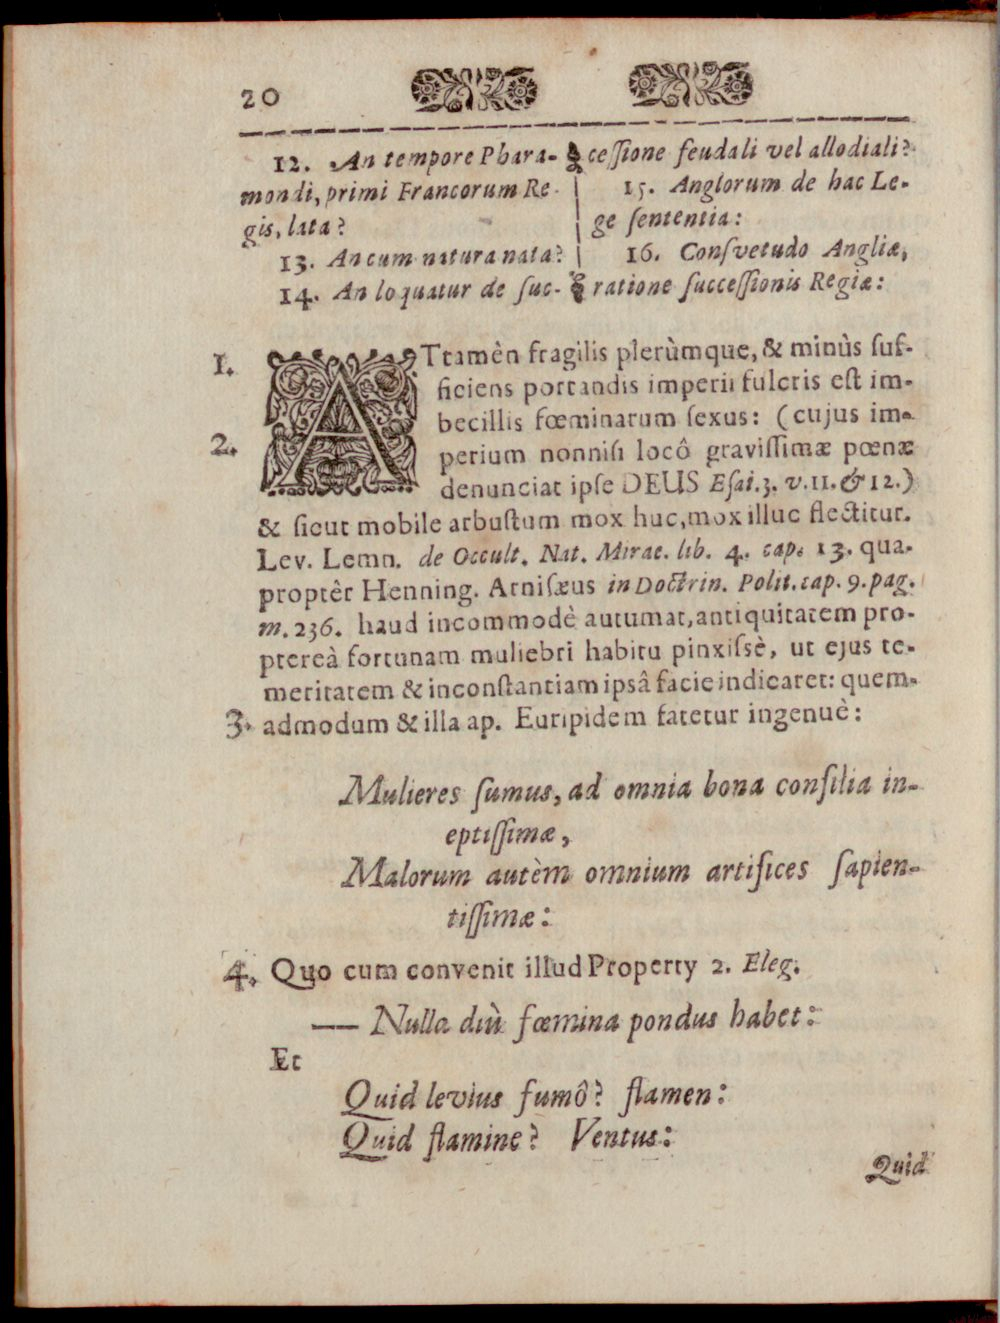 20
12. An tempore Phara-
mondi, primi Francorum Re-
gis, lata?
13. An cum natura nata?
14. An loquatur de suc-
cessione feudali vel allodiali?
15. Anglorum de hac Le-
ge sententia:
16. Consvetudo Angliæ,
ratione successionis Regiæ:
1. ATtamèn fragilis plerùmque, & minùs suf-
ficiens portandis imperii fulcris est im-
becillis fœminarum sexus: (cujus im-
2. perium nonnisi locô gravissimæ pœnæ
denunciat ipse DEUS Esai. 3. v. 11. & 12.)
& sicut mobile arbustum mox huc, mox illuc flectitur.
Lev. Lemn. de Occult. Nat. Mirac. lib. 4. cap. 13. qua-
proptêr Henning. Arnisæus in Doctrin. Polit. cap. 9. pag.
m. 236. haud incommodè autumat, antiquitatem pro-
ptereà fortunam muliebri habitu pinxissè, ut ejus te-
meritatem & inconstantiam ipsâ facie indicaret: quem-
3. admodum & illa ap. Euripidem fatetur ingenuè:
Mulieres sumus, ad omnia bona consilia in-
eptissimæ,
Malorum autèm omnium artifices sapien-
tissimæ:
4. Quo cum convenit illud Property 2. Eleg.
— Nulla diù fœmina pondus habet:
Et
Quid levius fumô? flamen:
Quid flamine? Ventus:
Quid